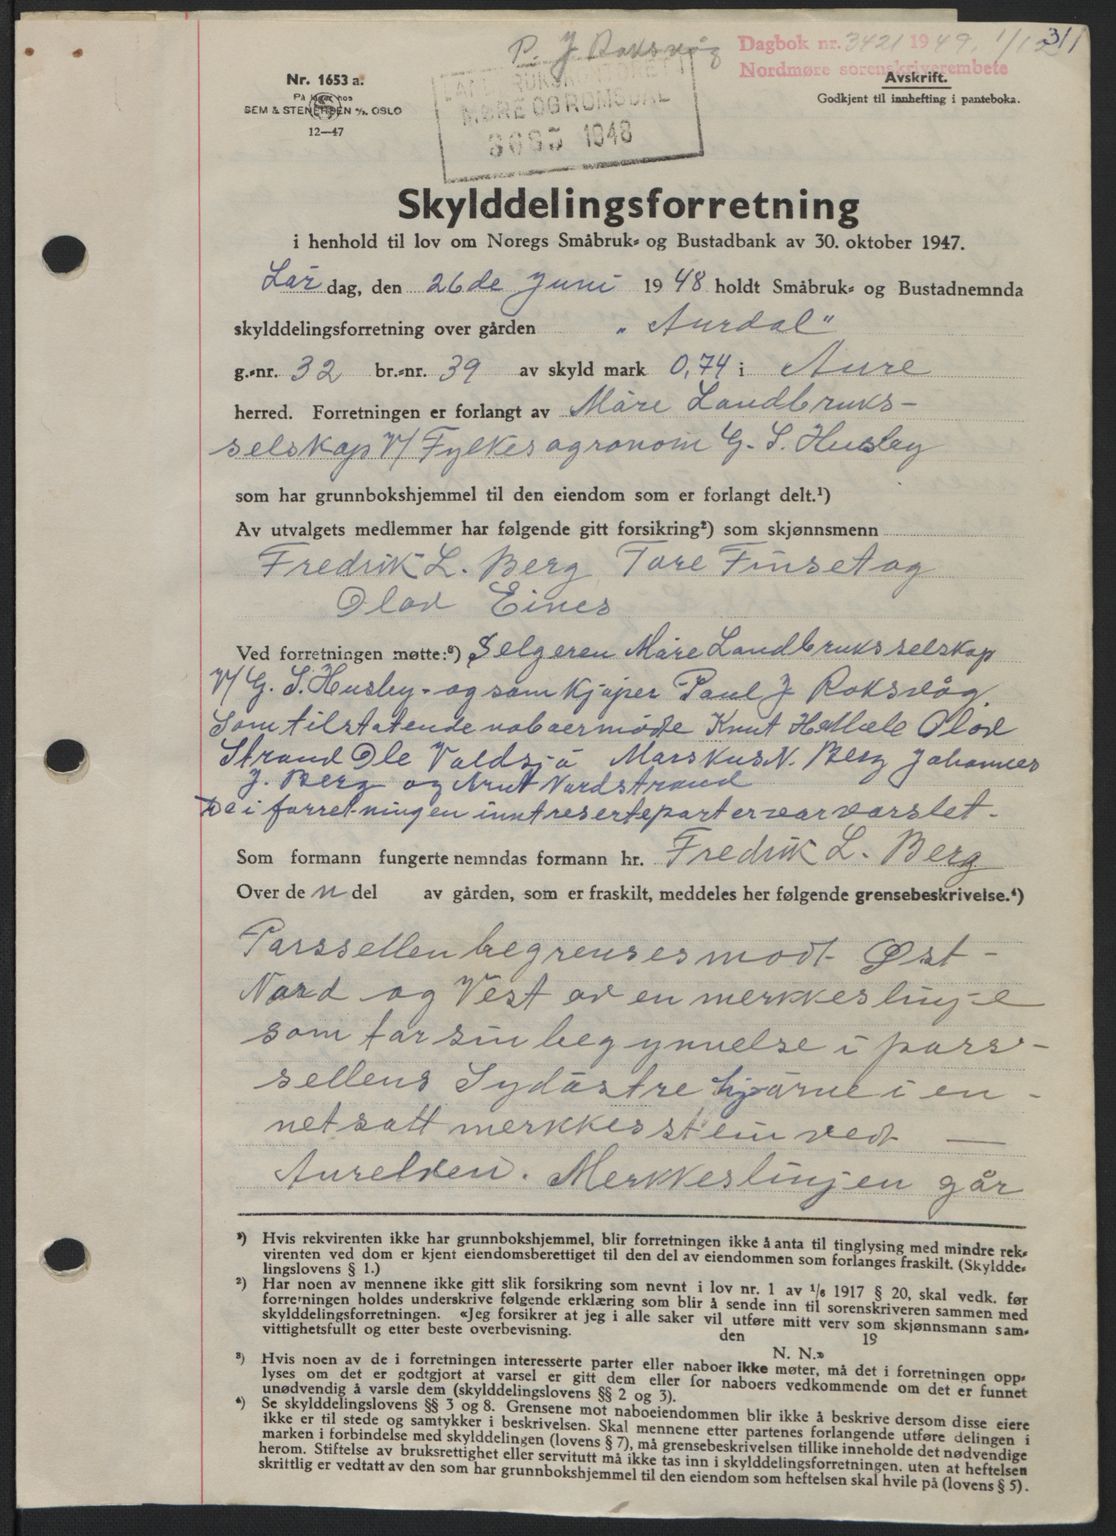 P. J Roksvåg
Dagbok nr. 3421 1949. 1/12 311
Nordmøre sorenskriverembete
Nr. 1653 a.
På lager hos
SEM & STENERSEN A/S. OSLO
12—47
LANDBRUKSKONTORET I
MØRE OG ROMSDAL
1948
Avskrift.
Godkjent til innhefting i panteboka.
Skylddelingsforretning
i henhold til lov om Noregs Småbruk- og Bustadbank av 30. oktober 1947.
Lør dag, den 26de Juni 1948 holdt Småbruk- og Bustadnemnda
skylddelingsforretning over gården „Aurdal"
g.-nr. 32 br.-nr. 39 av skyld mark 0,74 i Aure
herred. Forretningen er forlangt av Møre Landbruks-
selskap V/ Fylkesagronom G. S. Husby
som har grunnbokshjemmel til den eiendom som er forlangt delt.¹)
Av utvalgets medlemmer har følgende gitt forsikring²) som skjønnsmenn
Fredrik L. Berg Tore Finset og
Olav Eines
Ved forretningen møtte:³) Selgeren Møre Landbruksselskap
V/ G. S. Husby - og som kjøper Paul J Roksvåg
Som tilstøtende naboer møtte Knut H Mæle Olav
Strand Ole Valdsjø Marskus N. Berg Johannes
J. Berg og Arnt Nordstrand
De i forretningen inntreserte parter var varslet -
Som formann fungerte nemndas formann hr. Fredrik L. Berg
Over de n del av gården, som er fraskilt, meddeles her følgende grensebeskrivelse.⁴)
Parssellen begrenses modt Øst -
Nord og Vest av en merkkeslinje
som tar sin begynnelse i pars-
sellens Sydøstre hjørne i en -
netsatt merkkesstein vedt —
Aurelven. Merkkeslinjen går
¹) Hvis rekvirenten ikke har grunnbokshjemmel, blir forretningen ikke å anta til tinglysing med mindre rek-
virenten ved dom er kjent eiendomsberettiget til den del av eiendommen som forlanges fraskilt. (Skyldde-
lingslovens § 1.)
²) Har noen av mennene ikke gitt slik forsikring som nevnt i lov nr. 1 av 1/6 1917 § 20, skal vedk. før
forretningen holdes underskrive følgende erklæring som blir å sende inn til sorenskriveren sammen med
skylddelingsforretningen. «Jeg forsikrer at jeg i alle saker vil utføre mitt verv som skjønnsmann sam-
vittighetsfullt og etter beste overbevisning. den 19
N. N.»
³) Hvis noen av de i forretningen interesserte parter eller naboer ikke møter, må det i forretningen opp-
lyses om det er godtgjort at varsel er gitt dem eller for naboers vedkommende om det er funnet
unødvendig å varsle dem (skylddelingslovens §§ 2 og 3).
⁴) Se skylddelingslovens §§ 3 og 8. Grensene mot naboeiendommen blir ikke å beskrive dersom disse eiere
ikke er til stede og samtykker i beskrivelsen. Skal mennene etter partenes forlangende utføre delingen i
marken i forbindelse med skylddelingen (lovens § 7), må grensebeskrivelsen tillike inneholde det nødvendige
herom. Stiftelse av bruksrettighet eller servitutt må ikke tas inn i skylddelingsforretningen. uten at heftelsen
skrittlig er vedtatt av den som har grunnbokshjemmel til den eiendom som heftelsen skal hvile på (lovens § 5).